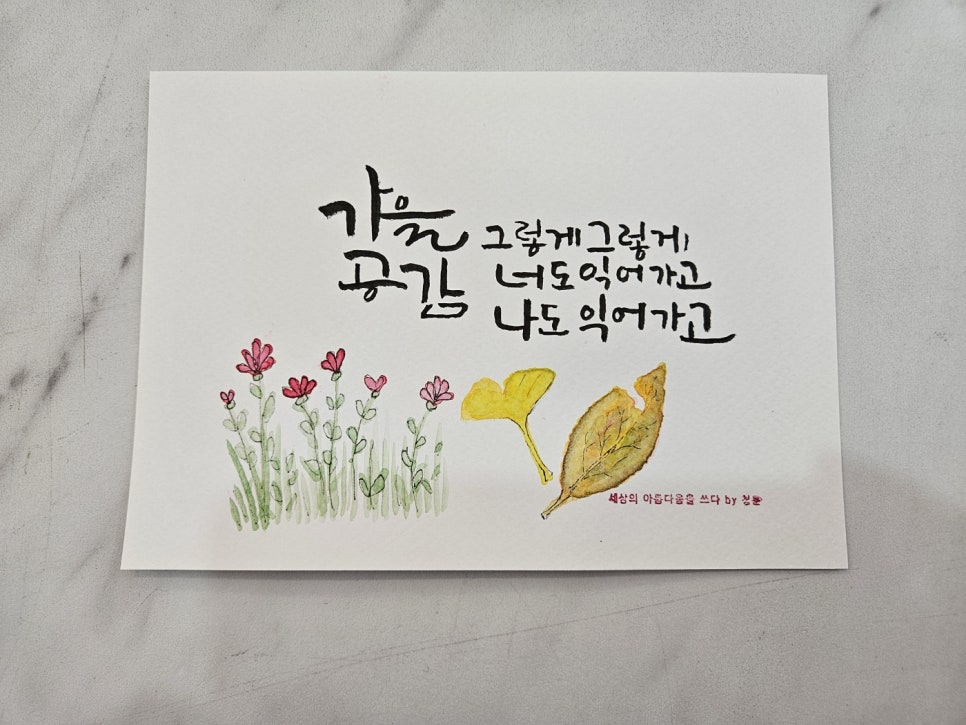 가을
공감
그렇게 그렇게
너도 익어가고
나도 익어가고
세상의 아름다움을 쓰다 by 청훈